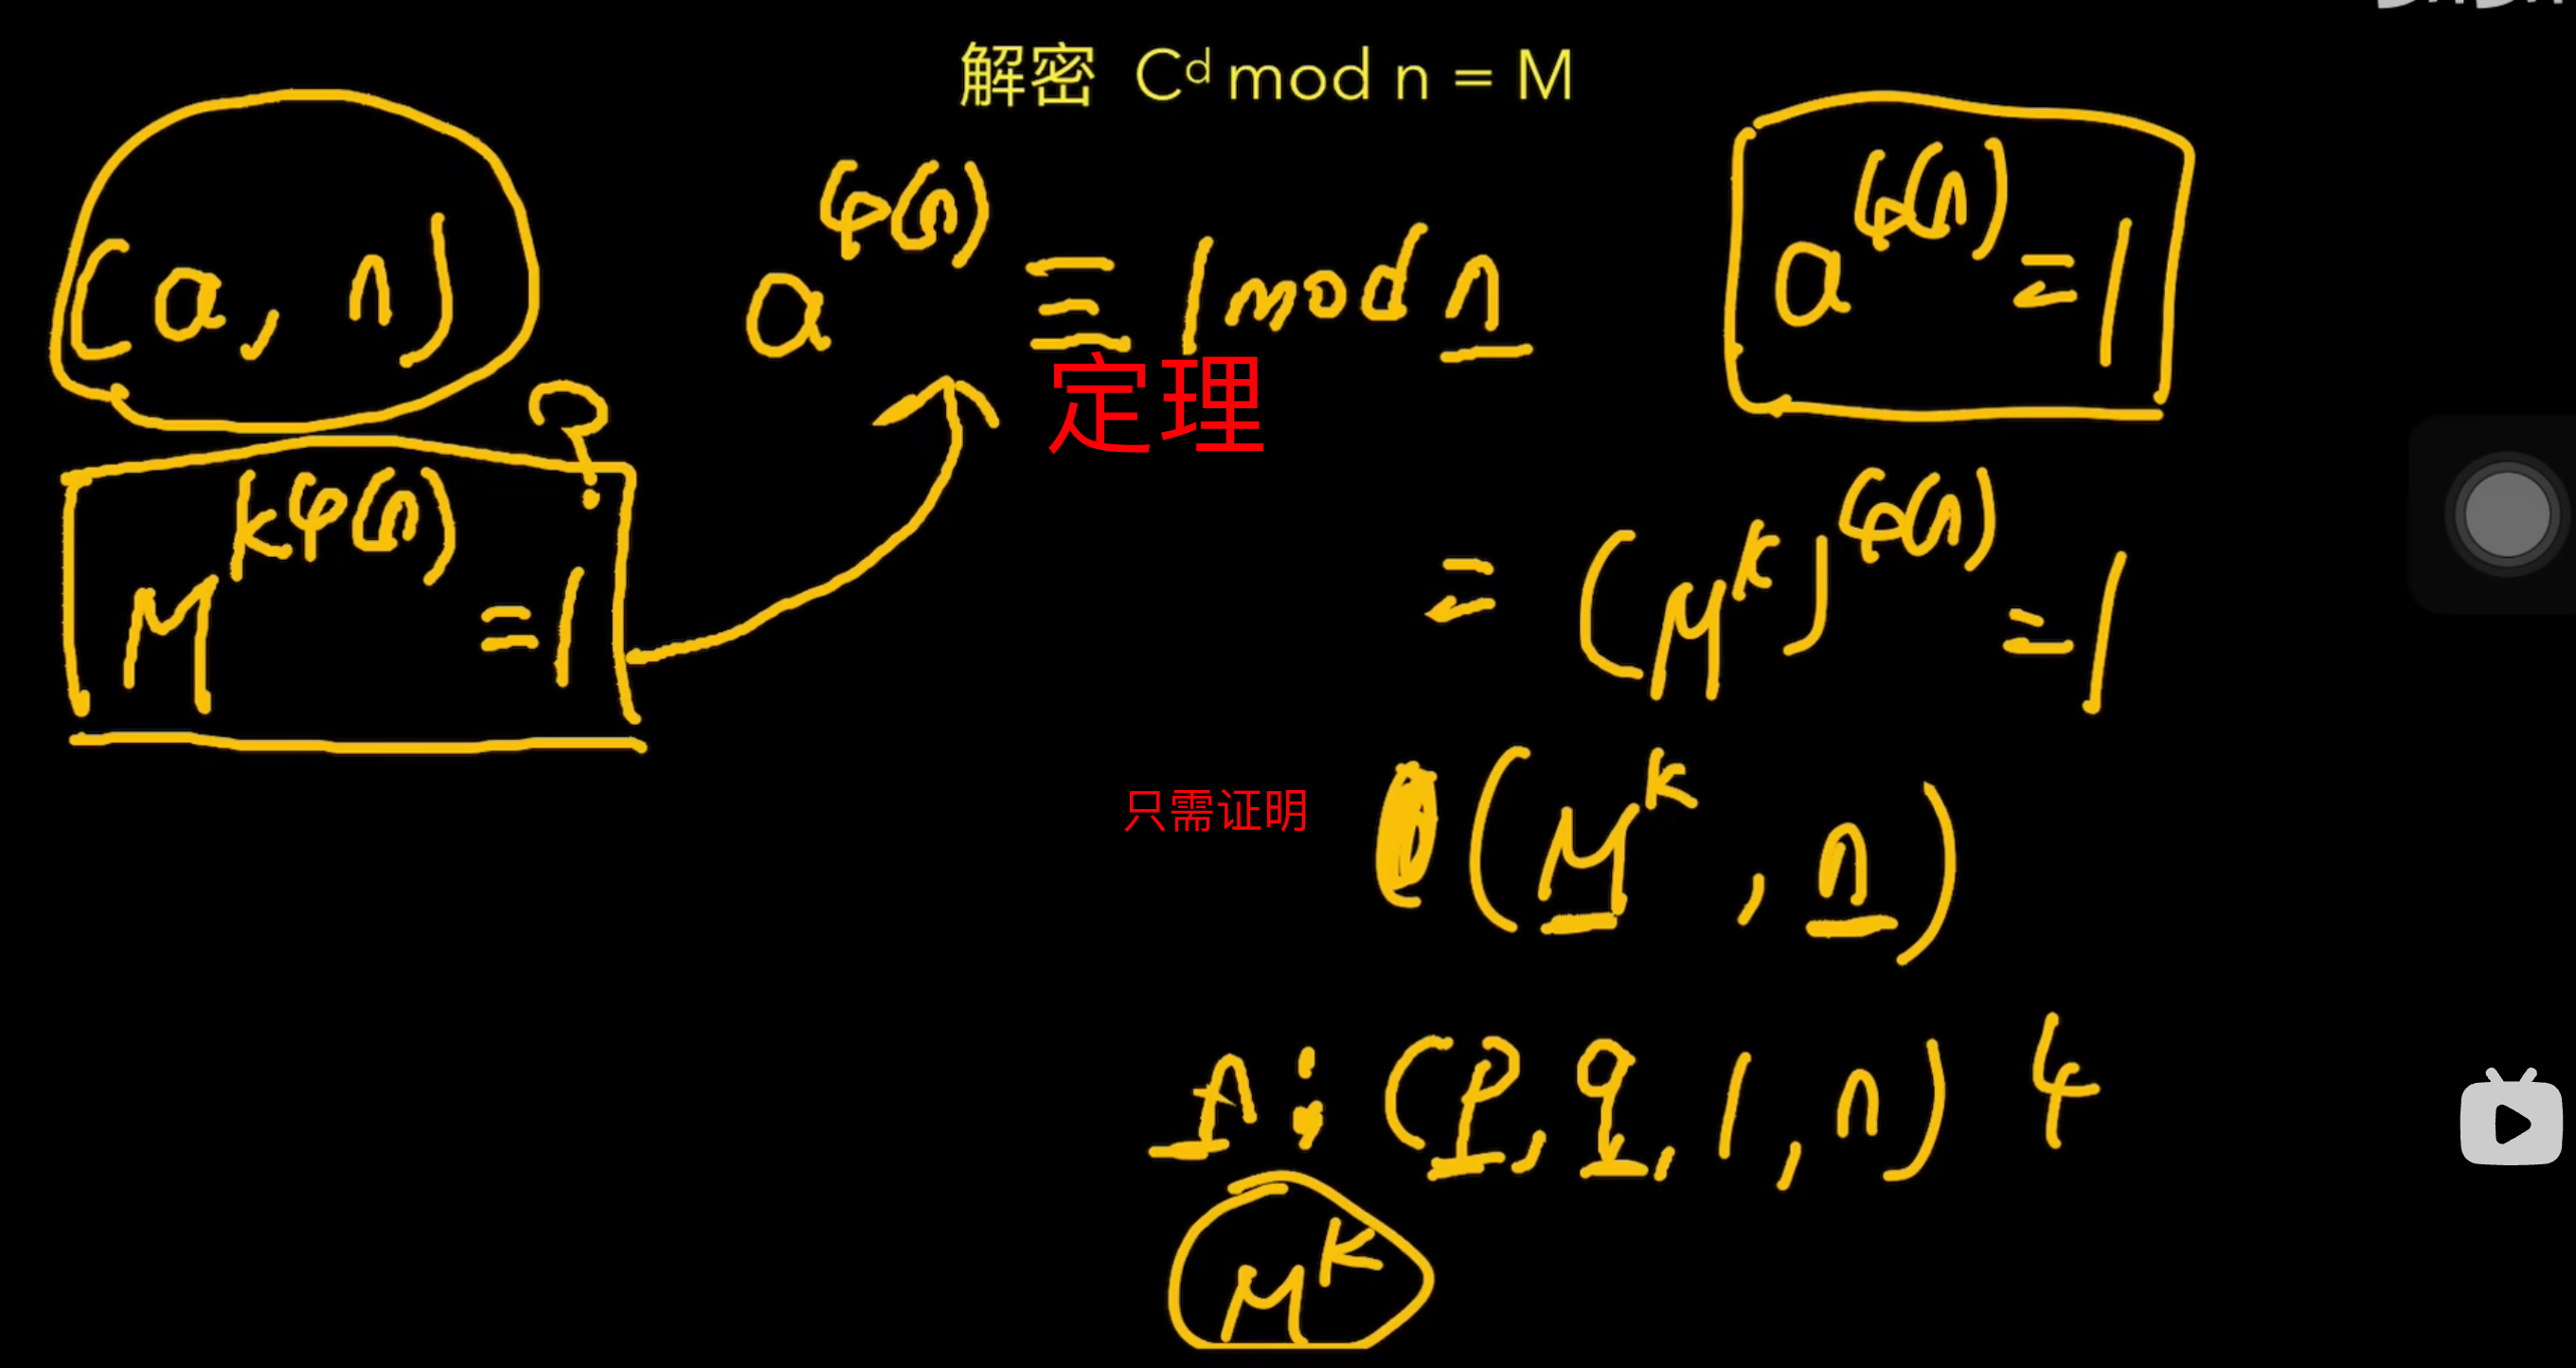 解密 Cᵈ mod n = M
(a, n)
a^φ(n) ≡ 1 mod n
a^φ(n) = 1
定理
?
M^kφ(n) = 1
= (M^k)^φ(n) = 1
只需证明
(M^k, n)
n: (p, q, 1, n) 4
M^k